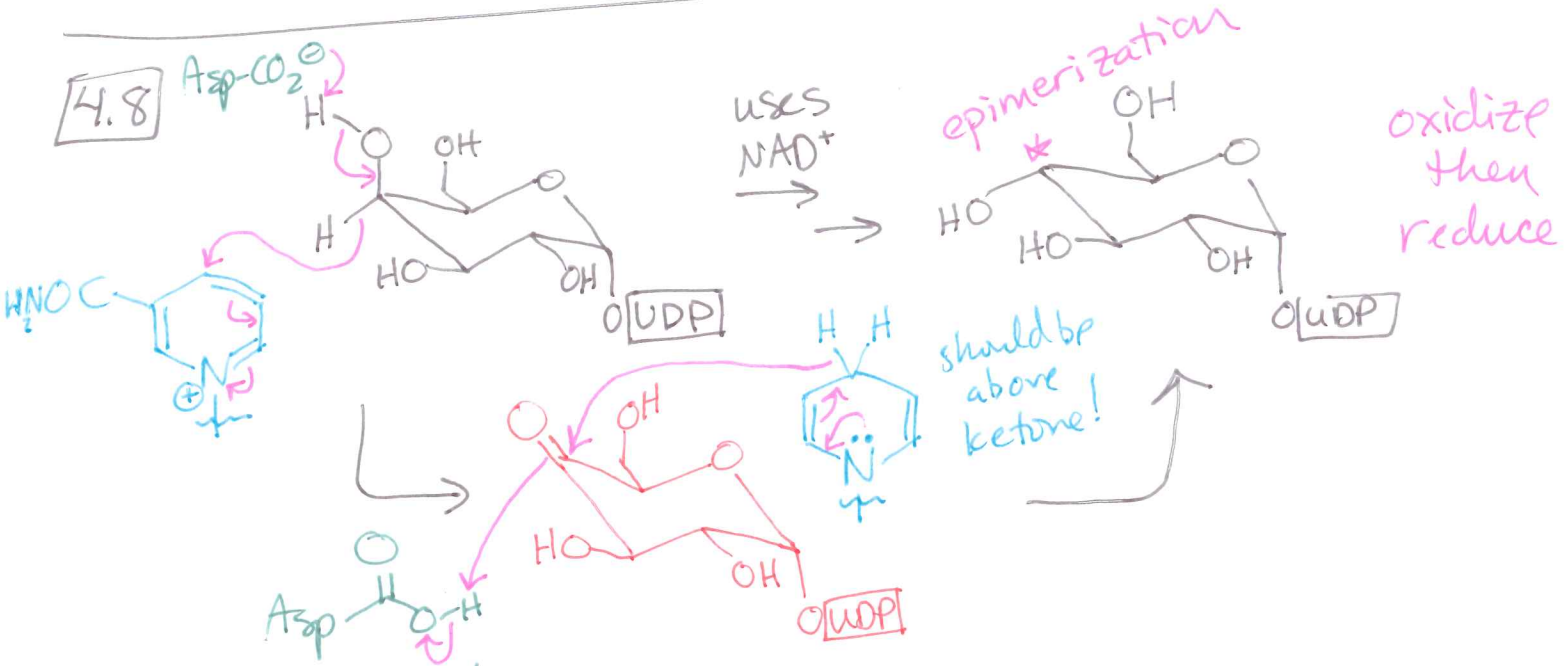 4.8
Asp-CO2⊖
H
O
OH
O
H
HO
OH
O UDP
H2NOC
N
⊕
uses
NAD+
epimerization
OH
O
HO
HO
OH
O UDP
oxidize
then
reduce
H H
N
should be
above
ketone!
O
OH
O
HO
OH
O UDP
O
Asp
O-H